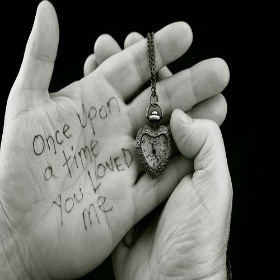 Once upon
a time
you LOVED
me